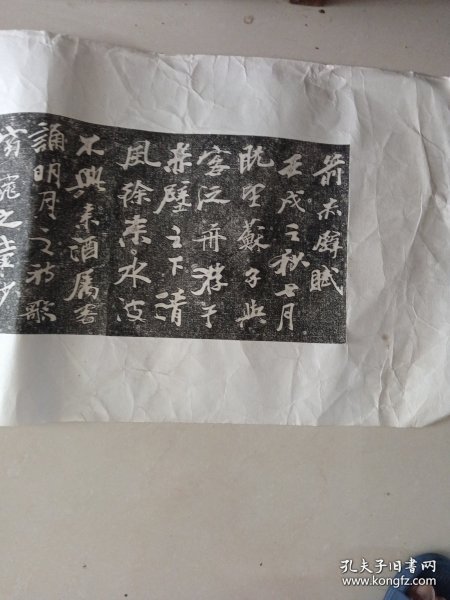 前赤壁賦
壬戌之秋七月
既望蘇子與
客泛舟游于
赤壁之下清
風徐来水波
不興舉酒属客
誦明月之詩歌
窈窕之章少
孔夫子旧书网
www.kongfz.com